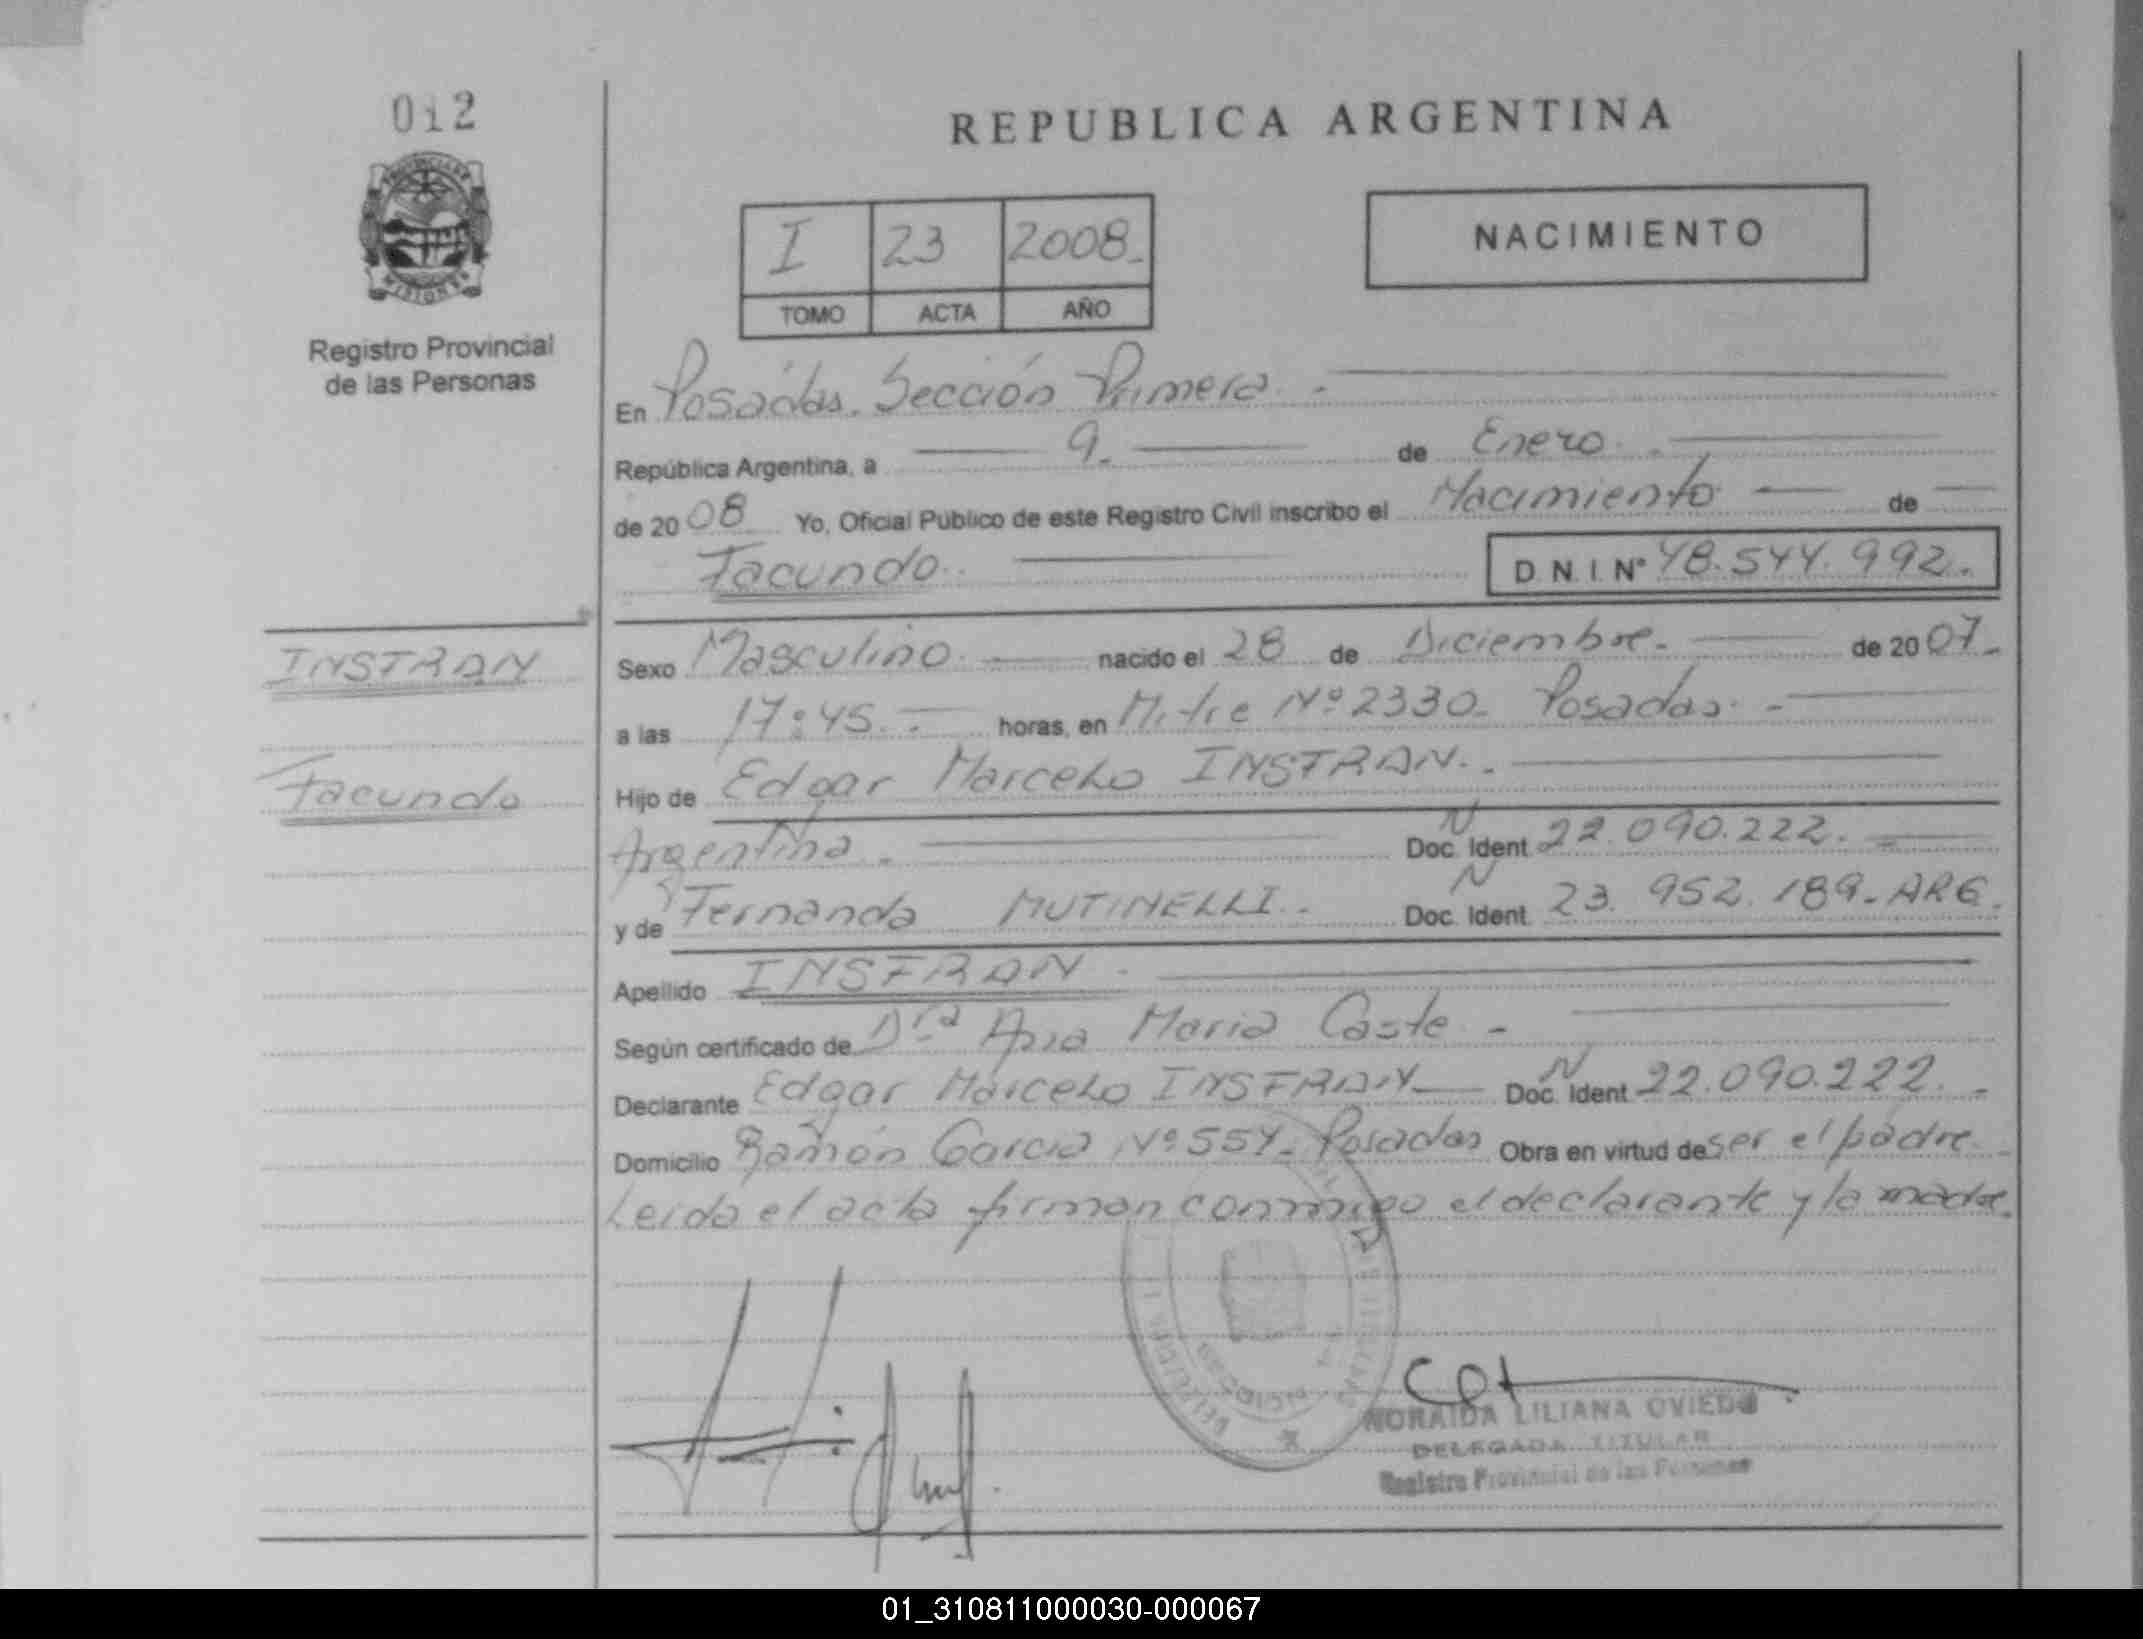 012
REPUBLICA ARGENTINA
PROVINCIA DE
MISIONES
Registro Provincial
de las Personas
I 23 2008.-
TOMO ACTA AÑO
NACIMIENTO
En Posadas. Sección Primera. -
República Argentina, a 9. de Enero. -
de 2008 Yo, Oficial Público de este Registro Civil inscribo el Nacimiento de
Facundo. D.N.I. Nº 48.544.992.
INSFRAN
Facundo
Sexo Masculino. nacido el 28 de Diciembre. de 2007.-
a las 17:45. - horas, en Mitre Nº 2330. Posadas. -
Hijo de Edgar Marcelo INSFRAN. -
Argentina. - Doc. N Ident 22.090.222. -
y de Fernanda MUTINELLI. - Doc. N Ident. 23.952.189. ARG.
Apellido INSFRAN. -
Según certificado de Dra Ana Maria Caste. -
Declarante Edgar Marcelo INSFRAN Doc. N Ident 22.090.222. -
Domicilio Ramón Garcia Nº 554. Posadas Obra en virtud de ser el padre. -
Leida el acta firman conmigo el declarante y la madre.
NORAIDA LILIANA OVIEDO
DELEGADA TITULAR
Registro Provincial de las Personas
01_310811000030-000067